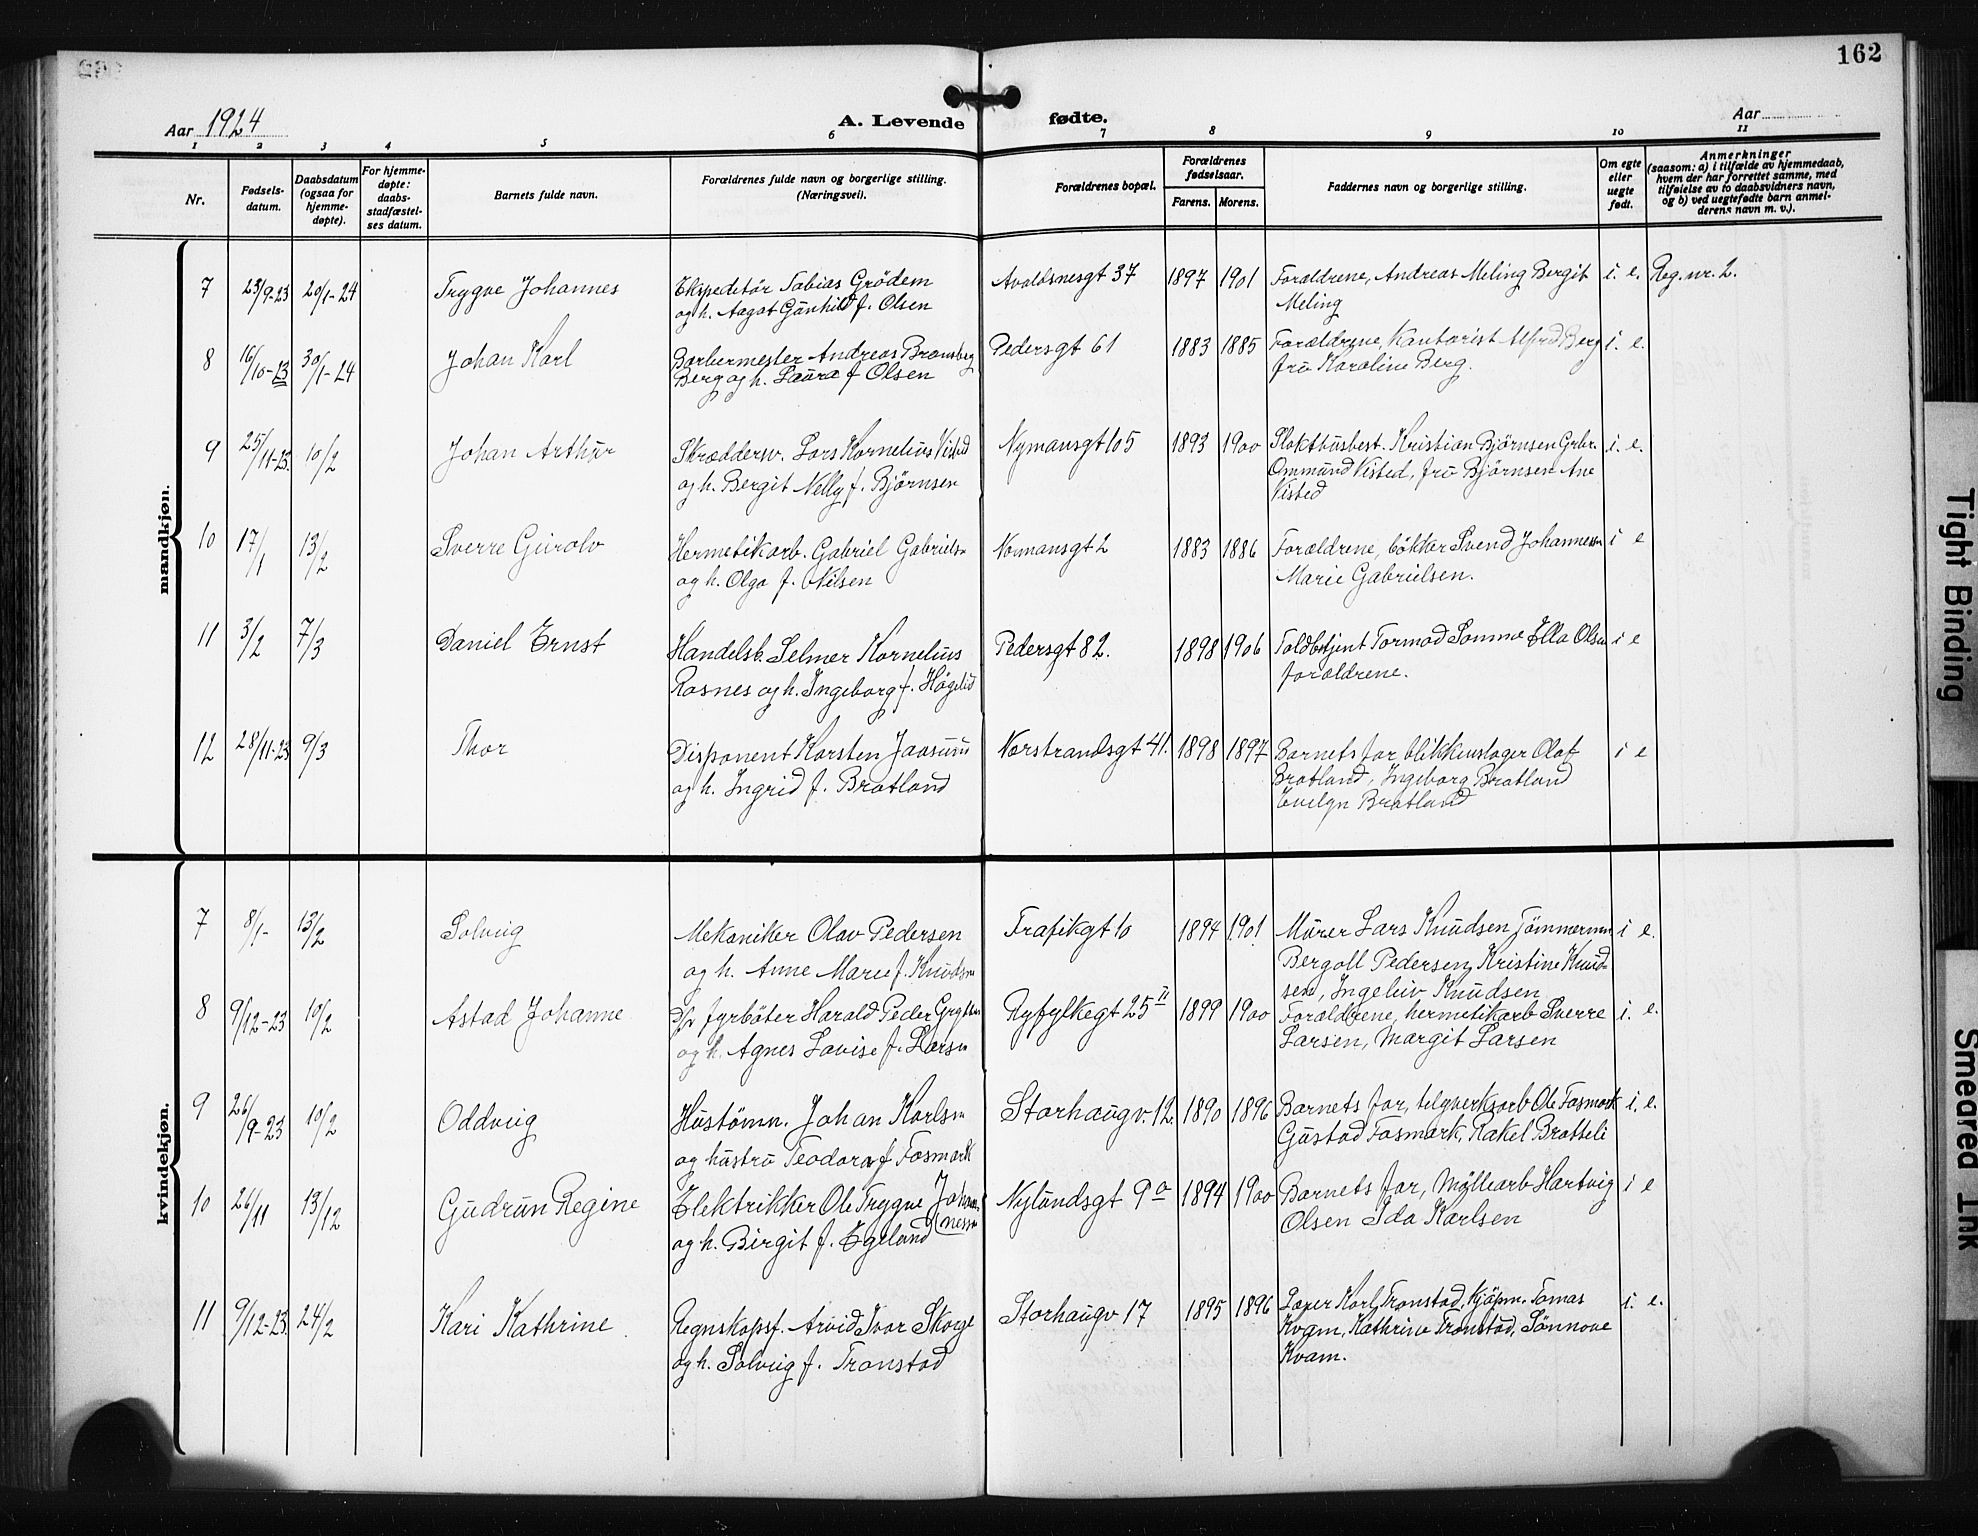 162
Aar 1924
A. Levende fødte.
Aar
1 2 3 4 5 6 7 8 9 10 11
Nr.
Fødsels-
datum.
Daabsdatum
(ogsaa for
hjemme-
døpte).
For hjemme-
døpte:
daabs-
stadfæstel-
ses datum.
Barnets fulde navn.
Forældrenes fulde navn og borgerlige stilling.
(Næringsvei).
Forældrenes bopæl.
Forældrenes
fødselsaar.
Farens. Morens.
Faddernes navn og borgerlige stilling.
Om egte
eller
uegte
født.
Anmerkninger
(saasom: a) i tilfælde av hjemmedaab,
hvem der har forrettet samme, med
tilføielse av to daabsvidners navn,
og b) ved uegtefødte barn anmel-
derens navn m. v.).
mandkjøn.
7 23/9-23 20/1-24 Trygve Johannes Ekspeditör Tobias Grödem Avaldsnesgt 37 1897 1901 Forældrene, Andreas Meling Bergit i. e. Reg. nr. 2.
og h. Aagot Gunhild f. Olsen Meling
8 16/10-23 30/1-24 Johan Karl Barbermester Andreas Bramsberg Pedersgt 61 1883 1885 Forældrene, Kontorist Alfred Berg i. e.
Berg og h. Laura f Olsen fru Karoline Berg.
9 25/11-23. 10/2 Johan Arthur Skræddersv. Lars Kornelius Visted Nymansgt 105 1893 1900 Slakthusbest. Kristian Björnsen Grbr. i. e.
og h. Bergit Nelly f. Björnsen Ommund Visted, fru Björnsen Ane
Visted
10 17/1 13/2 Sverre Gurolv Hermetikarb. Gabriel Gabrielsn Normansgt 2 1883 1886 Forældrene, bökker Svend Johannessen i e
og h. Olga f. Nilsen Marie Gabrielsen.
11 3/2 7/3 Daniel Ernst Handelsb. Selmer Kornelius Pedersgt 82. 1898 1906 Toldbetjent Tormod Somme Ella Olsen i e
Rosnes og h. Ingeborg f. Högelid forældrene.
12 28/11-23 9/3 Thor Disponent Karsten Jaasund Norstrandsgt 41. 1898 1897 Barnets far blikkenslager Olaf i e
og h. Ingrid f. Bratland Bratland, Ingeborg Bratland
Evelyn Bratland
kvindekjøn.
7 8/1- 13/2 Solveig Mekaniker Olav Pedersen Trafikgt 10 1894 1901 Murer Lars Knudsen Tömmermn i e.
og h. Anne Marie f. Knudsen Bergoll Pedersen, Kristine Knud-
sen, Ingeleiv Knudsen
8 9/12-23 10/2 Astad Johanne D/s fyrböter Harald Peder Ryfylkegt 25 II 1899 1900 Forældrene, hermetikarb Sverre i. e.
og h. Agnes Lovise f. Larsn Larsen, Margit Larsen
9 26/9-23 10/2 Oddveig Hustömn. Johan Karlsn Storhaugv. 12. 1890 1896 Barnets far, telgverksarb Ole Fosmark i. e.
og hustru Teodora f Fosmark Gustad Fosmark, Rakel Bratteli
10 26/11 13/12 Gudrun Regine Elektrikker Ole Trygve Johan- Nylundsgt 9 a 1894 1900 Barnets far, Möllearb Hartvig i e
nessn
og h. Birgit f. Egeland Olsen Ida Karlsen
11 9/12-23. 24/2 Kari Kathrine Regnskapsf. Arvid Ivar Skorge Storhaugv 17 1895 1896 Loser Karl Tronstad, kjöpm. Tomas i. e.
og h. Solveig f. Tronstad Kvam, Kathrine Tronstad, Sönnove
Kvam.
Tight Binding
Smeared Ink